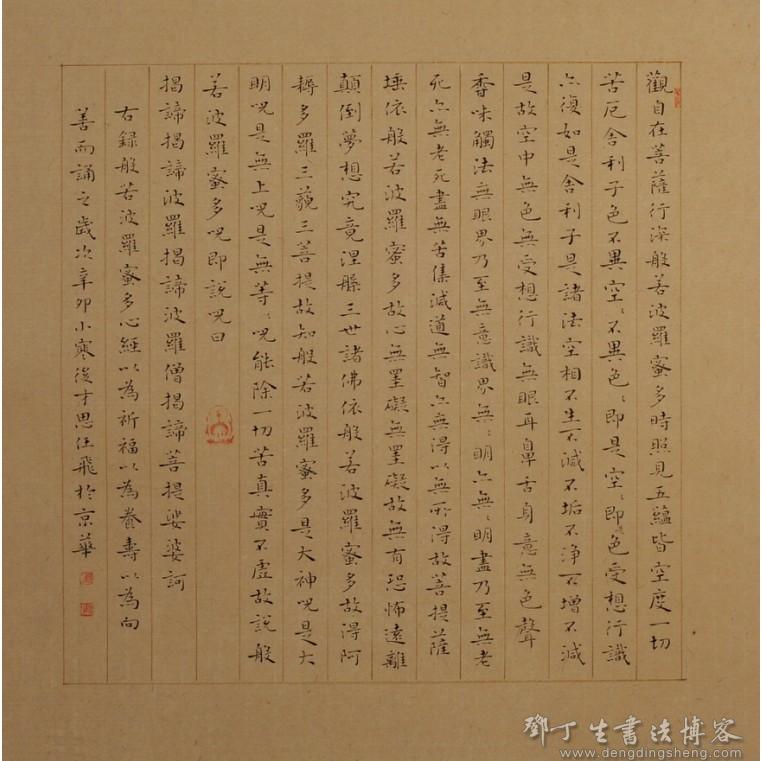 觀自在菩薩行深般若波羅蜜多時照見五蘊皆空度一切
苦厄舍利子色不異空〻不異色〻即是空〻即色受想行識
亦復如是舍利子是諸法空相不生不滅不垢不淨不增不減
是故空中無色無受想行識無眼耳鼻舌身意無色聲
香味觸法無眼界乃至無意識界無〻明亦無〻明盡乃至無老
死亦無老死盡無苦集滅道無智亦無得以無所得故菩提薩
埵依般若波羅蜜多故心無罣礙無罣礙故無有恐怖遠離
顛倒夢想究竟涅槃三世諸佛依般若波羅蜜多故得阿
耨多羅三藐三菩提故知般若波羅蜜多是大神咒是大
明咒是無上咒是無等〻咒能除一切苦真實不虛故說般
若波羅蜜多咒即說咒曰
揭諦揭諦波羅揭諦波羅僧揭諦菩提娑婆訶
右錄般若波羅蜜多心經以為祈福以為養壽以為向
善而誦之歲次辛卯小寒後才思任飛於京華
鄧丁生書法博客
www.dengdingsheng.com